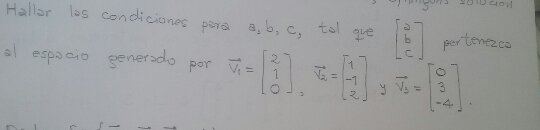 ninguna solución
Hallar las condiciones para a, b, c, tal que [a b c] pertenezca
al espacio generado por V₁ = [2 1 0], V₂ = [1 -1 2] y V₃ = [0 3 -4].